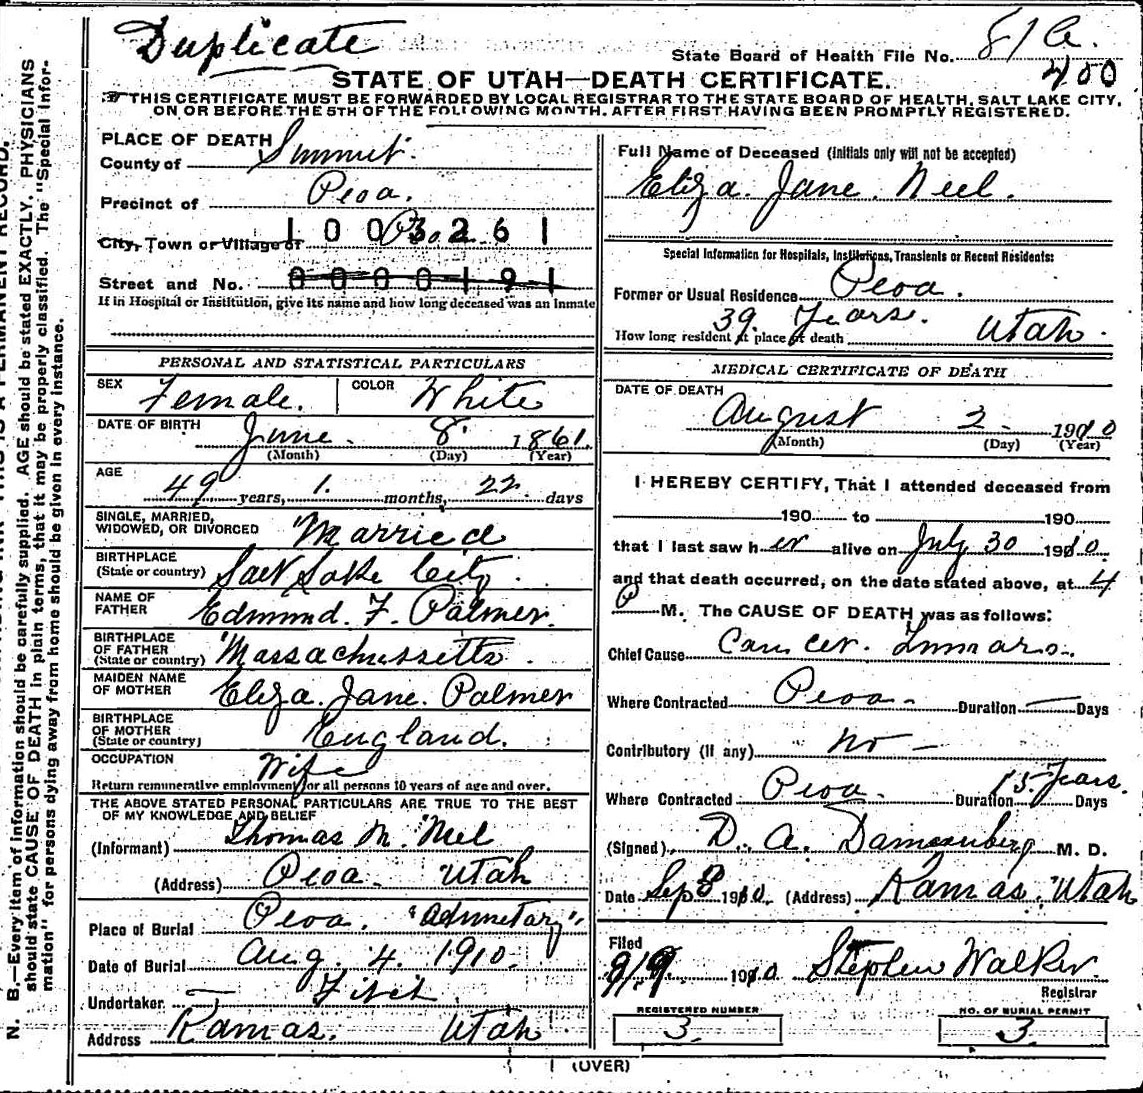 Duplicate
State Board of Health File No. 81 A.
400
STATE OF UTAH—DEATH CERTIFICATE.
THIS CERTIFICATE MUST BE FORWARDED BY LOCAL REGISTRAR TO THE STATE BOARD OF HEALTH, SALT LAKE CITY,
ON OR BEFORE THE 5TH OF THE FOLLOWING MONTH, AFTER FIRST HAVING BEEN PROMPTLY REGISTERED.
PLACE OF DEATH
County of Summit.
Precinct of Peoa.
City, Town or Village of Peoa
1003261
Street and No. 0000191
If in Hospital or Institution, give its name and how long deceased was an Inmate
PERSONAL AND STATISTICAL PARTICULARS
SEX Female. COLOR White
DATE OF BIRTH June 8 1861.
(Month) (Day) (Year)
AGE 49 years, 1. months, 22 days
SINGLE, MARRIED,
WIDOWED, OR DIVORCED Married
BIRTHPLACE
(State or country) Salt Lake City.
NAME OF
FATHER Edmund. F. Palmer.
BIRTHPLACE
OF FATHER
(State or country) Massachusetts.
MAIDEN NAME
OF MOTHER Eliza. Jane. Palmer
BIRTHPLACE
OF MOTHER
(State or country) England.
OCCUPATION Wife
Return remunerative employment for all persons 10 years of age and over.
THE ABOVE STATED PERSONAL PARTICULARS ARE TRUE TO THE BEST
OF MY KNOWLEDGE AND BELIEF
(Informant) Thomas M. Neel
(Address) Peoa. Utah
Place of Burial Peoa.
Date of Burial Aug. 4. 1910.
Undertaker
Address Kamas. Utah
Full Name of Deceased (Initials only will not be accepted)
Eliza. Jane. Neel.
Special Information for Hospitals, Institutions, Transients or Recent Residents:
Former or Usual Residence Peoa.
How long resident at place of death 39 Years. Utah
MEDICAL CERTIFICATE OF DEATH
DATE OF DEATH
August 2 1910
(Month) (Day) (Year)
I HEREBY CERTIFY, That I attended deceased from
190 to 190
that I last saw her alive on July 30 1910
and that death occurred, on the date stated above, at 4
P M. The CAUSE OF DEATH was as follows:
Chief Cause Cancer.
Where Contracted Peoa. Duration — Days
Contributory (if any) No —
Where Contracted Peoa. Duration 15 Years. Days
(Signed) D. A. Dannenberg M. D.
Date Sep 8 1910. (Address) Kamas. Utah
Filed
9/9 1910 Stephen Walker.
Registrar
REGISTERED NUMBER
3.
NO. OF BURIAL PERMIT
3.
(OVER)
N. B.—Every item of information should be carefully supplied. AGE should be stated EXACTLY. PHYSICIANS
should state CAUSE OF DEATH in plain terms, that it may be properly classified. The "Special Infor-
mation" for persons dying away from home should be given in every instance.